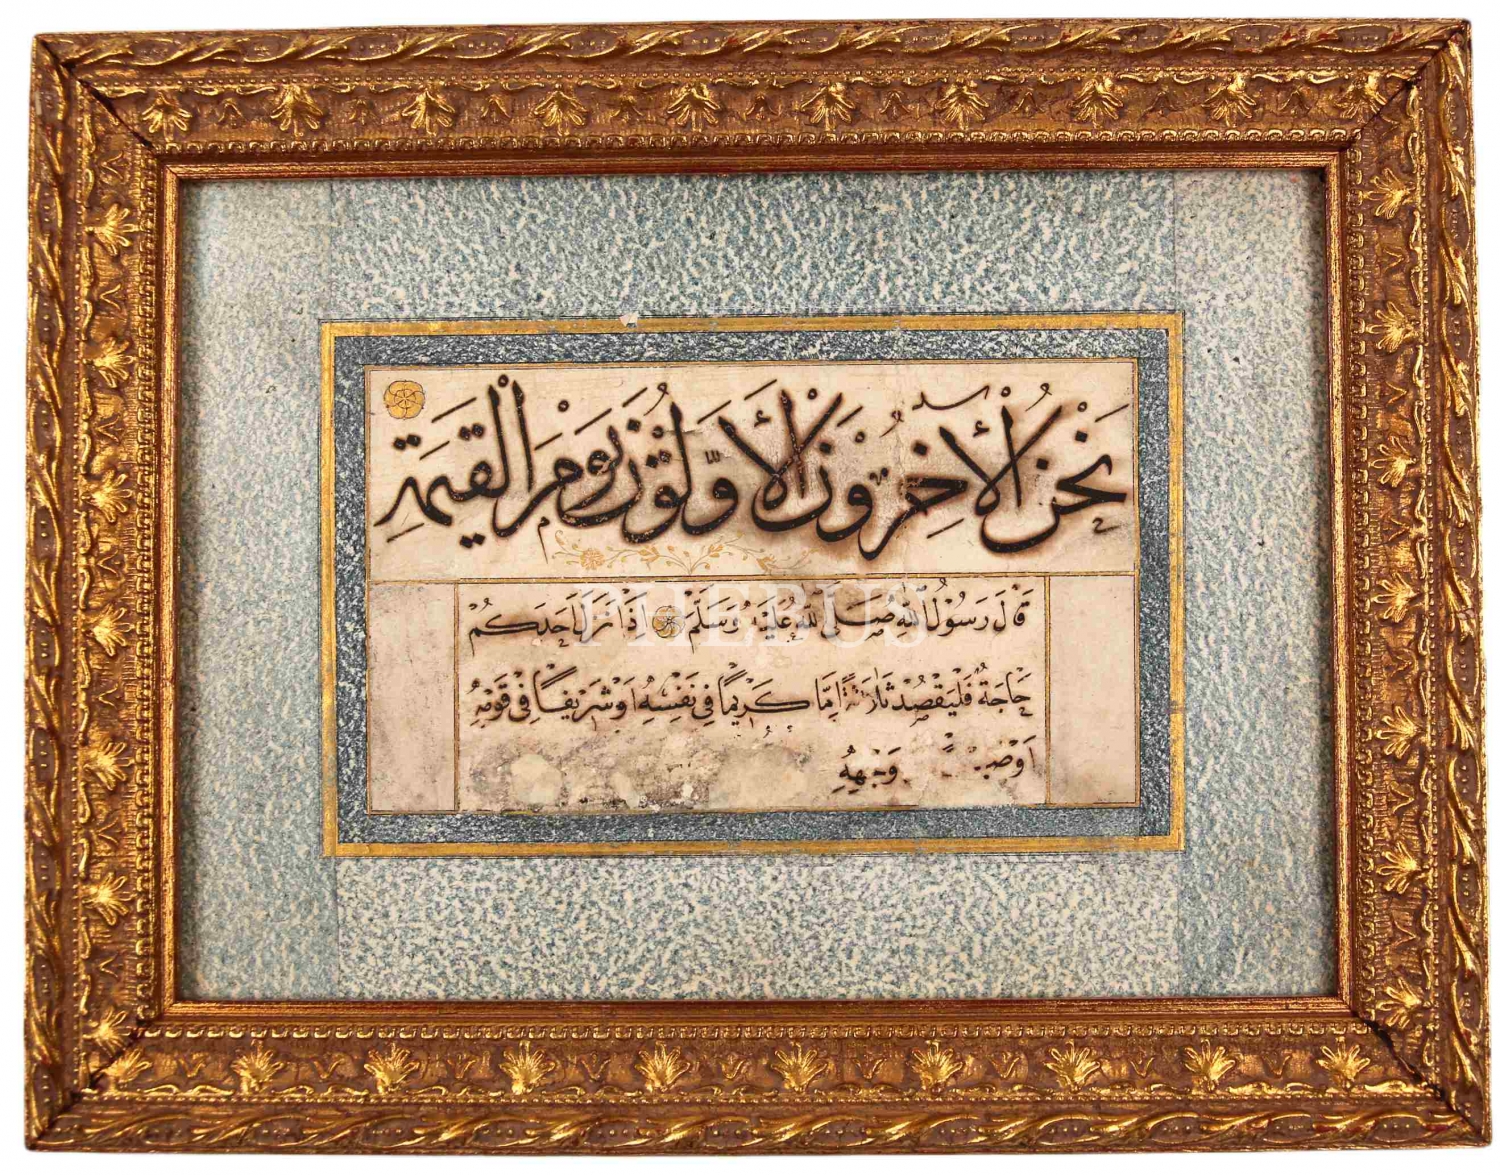 نَحْنُ الْأَخِرُونَ الْأَوَّلُونَ يَوْمَ الْقِيمَةِ
قَالَ رَسُولُ اللهِ صَلَّى اللهُ عَلَيْهِ وَسَلَّمَ اِذَا نَزَلَ اَحَدَكُمْ
حَاجَةٌ فَلْيَقْصُدْ ثَلٰثَةً اِمَّا كَرِيمًا فِي نَفْسِهِ اَوْ شَرِيفًا فِي قَوْمِهِ
اَوْ وَجْهِهِ
PHEBUS